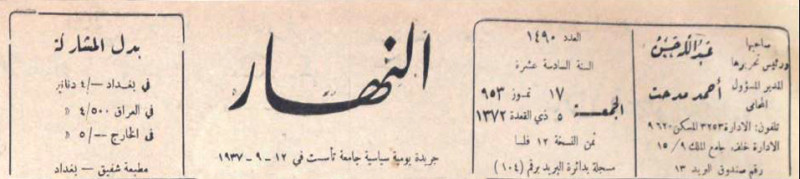 صاحبها
ورئيس تحريرها
عبدالله حسن
المدير المسؤول
المحامي
أحمد مدحت
تلفون: الادارة ٣٢٥٣ المسكن ٩٦٢٠
الادارة خلف جامع الملك ٩/ ١٥
رقم صندوق البريد ١٣
العدد ١٤٩٠
السنة السادسة عشرة
الجمعة
١٧ تموز ٩٥٣
٥ ذي القعدة ١٣٧٢
ثمن النسخة ١٢ فلسا
مسجلة بدائرة البريد برقم (١٠٤)
النهار
جريدة يومية سياسية جامعة تأسست في ١٢ – ٩ – ١٩٣٧
بدل المشاركة
في بغداد —/٤ دنانير
في العراق ٤/٥٠٠ »
في الخارج —/٥ »
مطبعة شفيق – بغداد